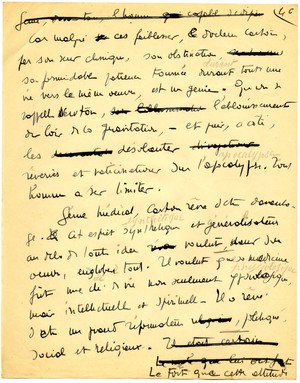 40
Car malgré ces faiblesses, le docteur Carton,
par son sens clinique, son obstination,
sa formidable patience tournée durant toute une
vie vers le même oeuvre, est un génie. Qu'on se
rappelle Newton, l'éblouissement
du loi de la gravitation, et puis, à côté,
les désolantes
rêveries et vaticinations sur l'apocalypse. Tout
homme a ses limites.
Génie médical, Carton rêve d'être davantage.
Cet esprit synthétique et généralisateur
au delà de toute idée voulut dans son
oeuvre, englober tout. Il voulut que sa médecine
fût une de la vie non seulement physiologique,
mais intellectuelle et spirituelle. Il a rêvé
d'être un grand réformateur, politique,
social et religieux.
Le fort que cette attitude